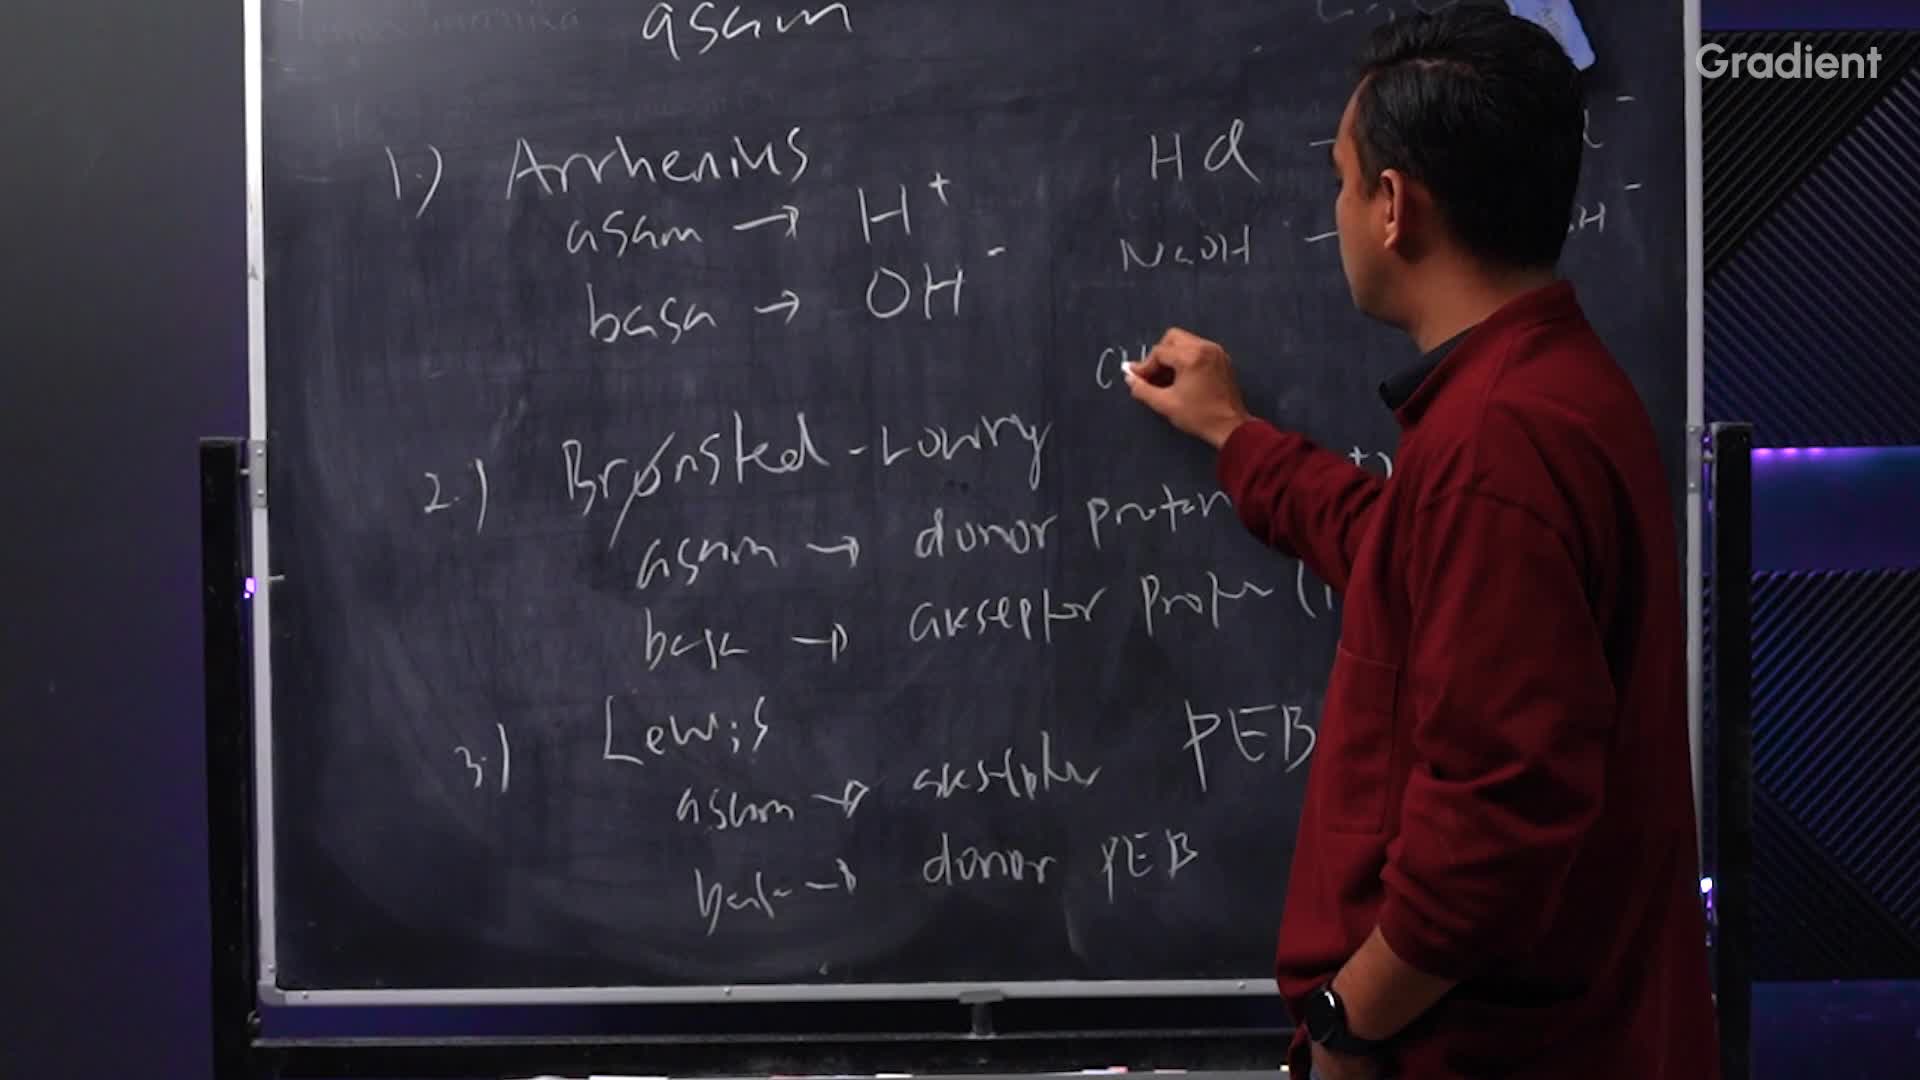 asam
Gradient
1.) Arrhenius
asam → H⁺
basa → OH⁻
HCl →
NaOH →
CH
2.) Brønsted-Lowry
asam → donor proton
basa → akseptor proton (
3.) Lewis
asam → akseptor PEB
basa → donor PEB